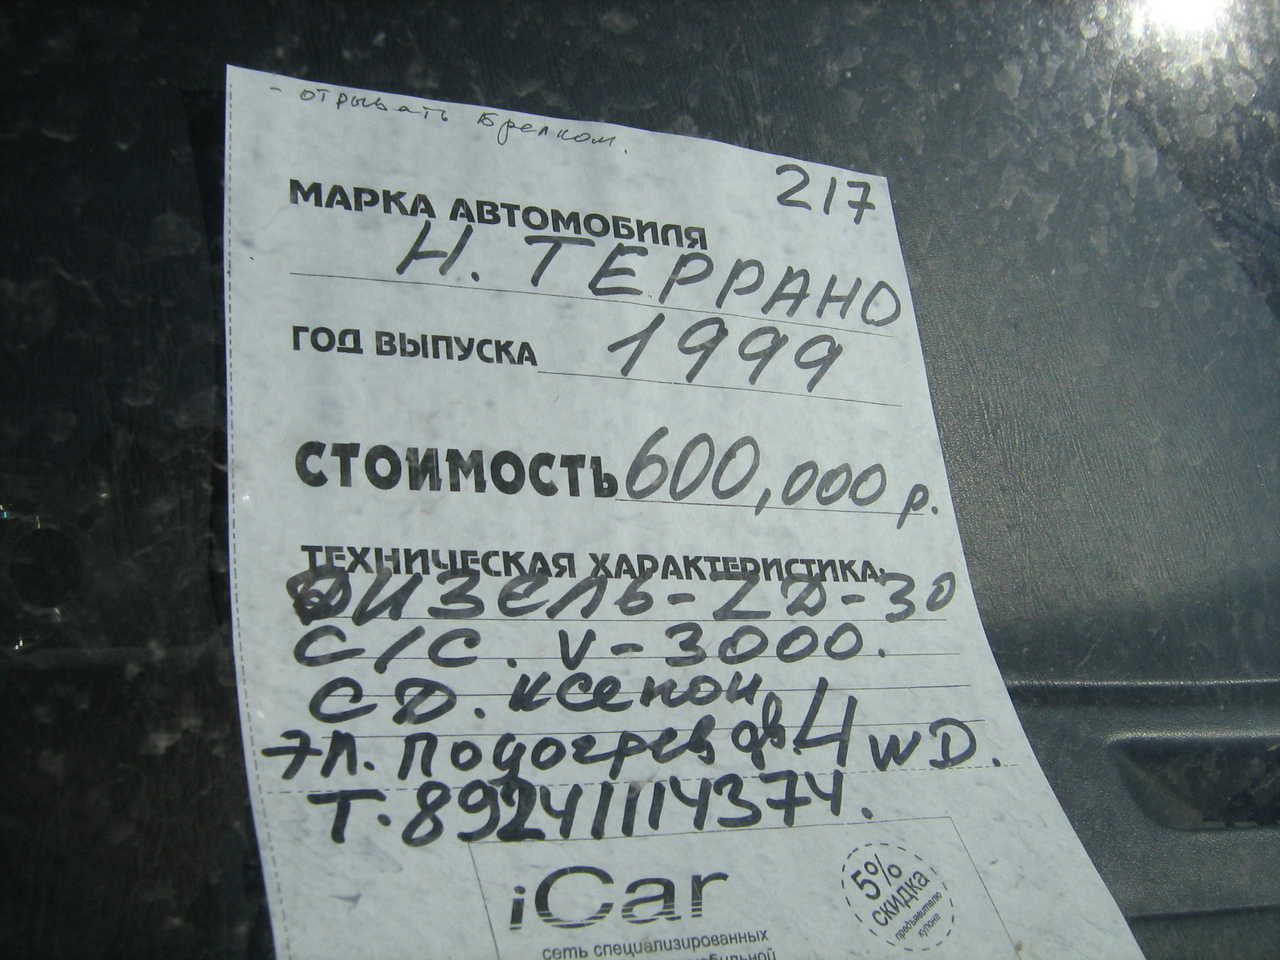 - отрывать брелком.
217
МАРКА АВТОМОБИЛЯ
Н. ТЕРРАНО
ГОД ВЫПУСКА 1999
СТОИМОСТЬ 600,000 р.
ТЕХНИЧЕСКАЯ ХАРАКТЕРИСТИКА:
ДИЗЕЛЬ-ZD-30
С/С. V-3000.
CD. ксенон
эл. подогрев дв. 4WD.
Т.89241114374.
iCar
5%
скидка
предъявителю
купона
сеть специализированных